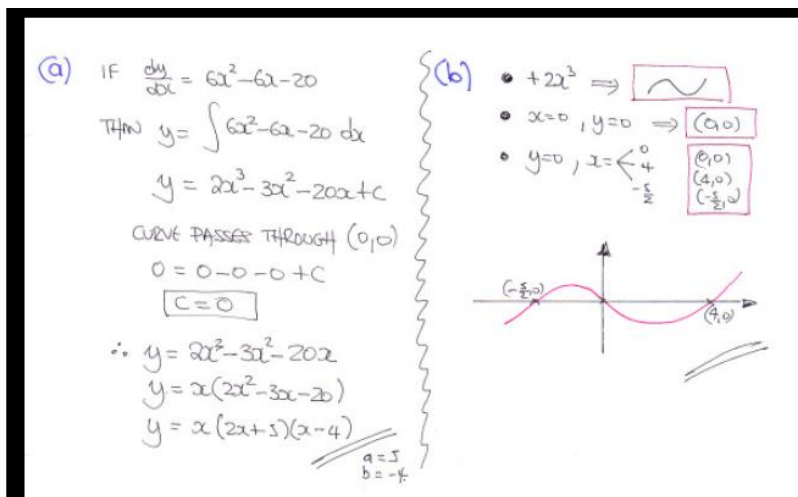 (a) IF dy/dx = 6x²-6x-20
THEN y = ∫ 6x²-6x-20 dx
y = 2x³-3x²-20x+C
CURVE PASSES THROUGH (0,0)
0 = 0-0-0+C
C=0
∴ y = 2x³-3x²-20x
y = x(2x²-3x-20)
y = x(2x+5)(x-4)
a=5
b=-4
(b) • +2x³ ⇒
• x=0, y=0 ⇒ (0,0)
• y=0, x= < 0
4
-5/2
(0,0)
(4,0)
(-5/2,0)
(-5/2,0)
(4,0)